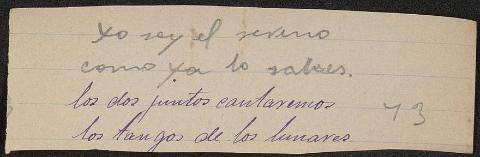 Yo soy el sereno
como ya lo sabes.
los dos juntos cantaremos 43
los tangos de los lunares